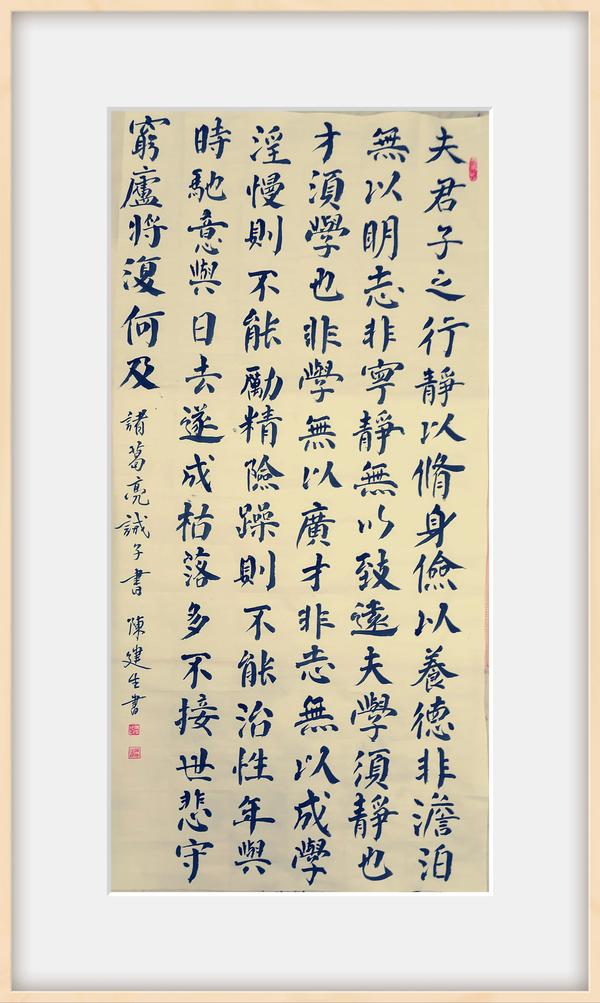 夫君子之行靜以脩身儉以養德非澹泊
無以明志非寧靜無以致遠夫學須靜也
才須學也非學無以廣才非志無以成學
淫慢則不能勵精險躁則不能治性年與
時馳意與日去遂成枯落多不接世悲守
窮廬將復何及
諸葛亮誡子書 陳建生書